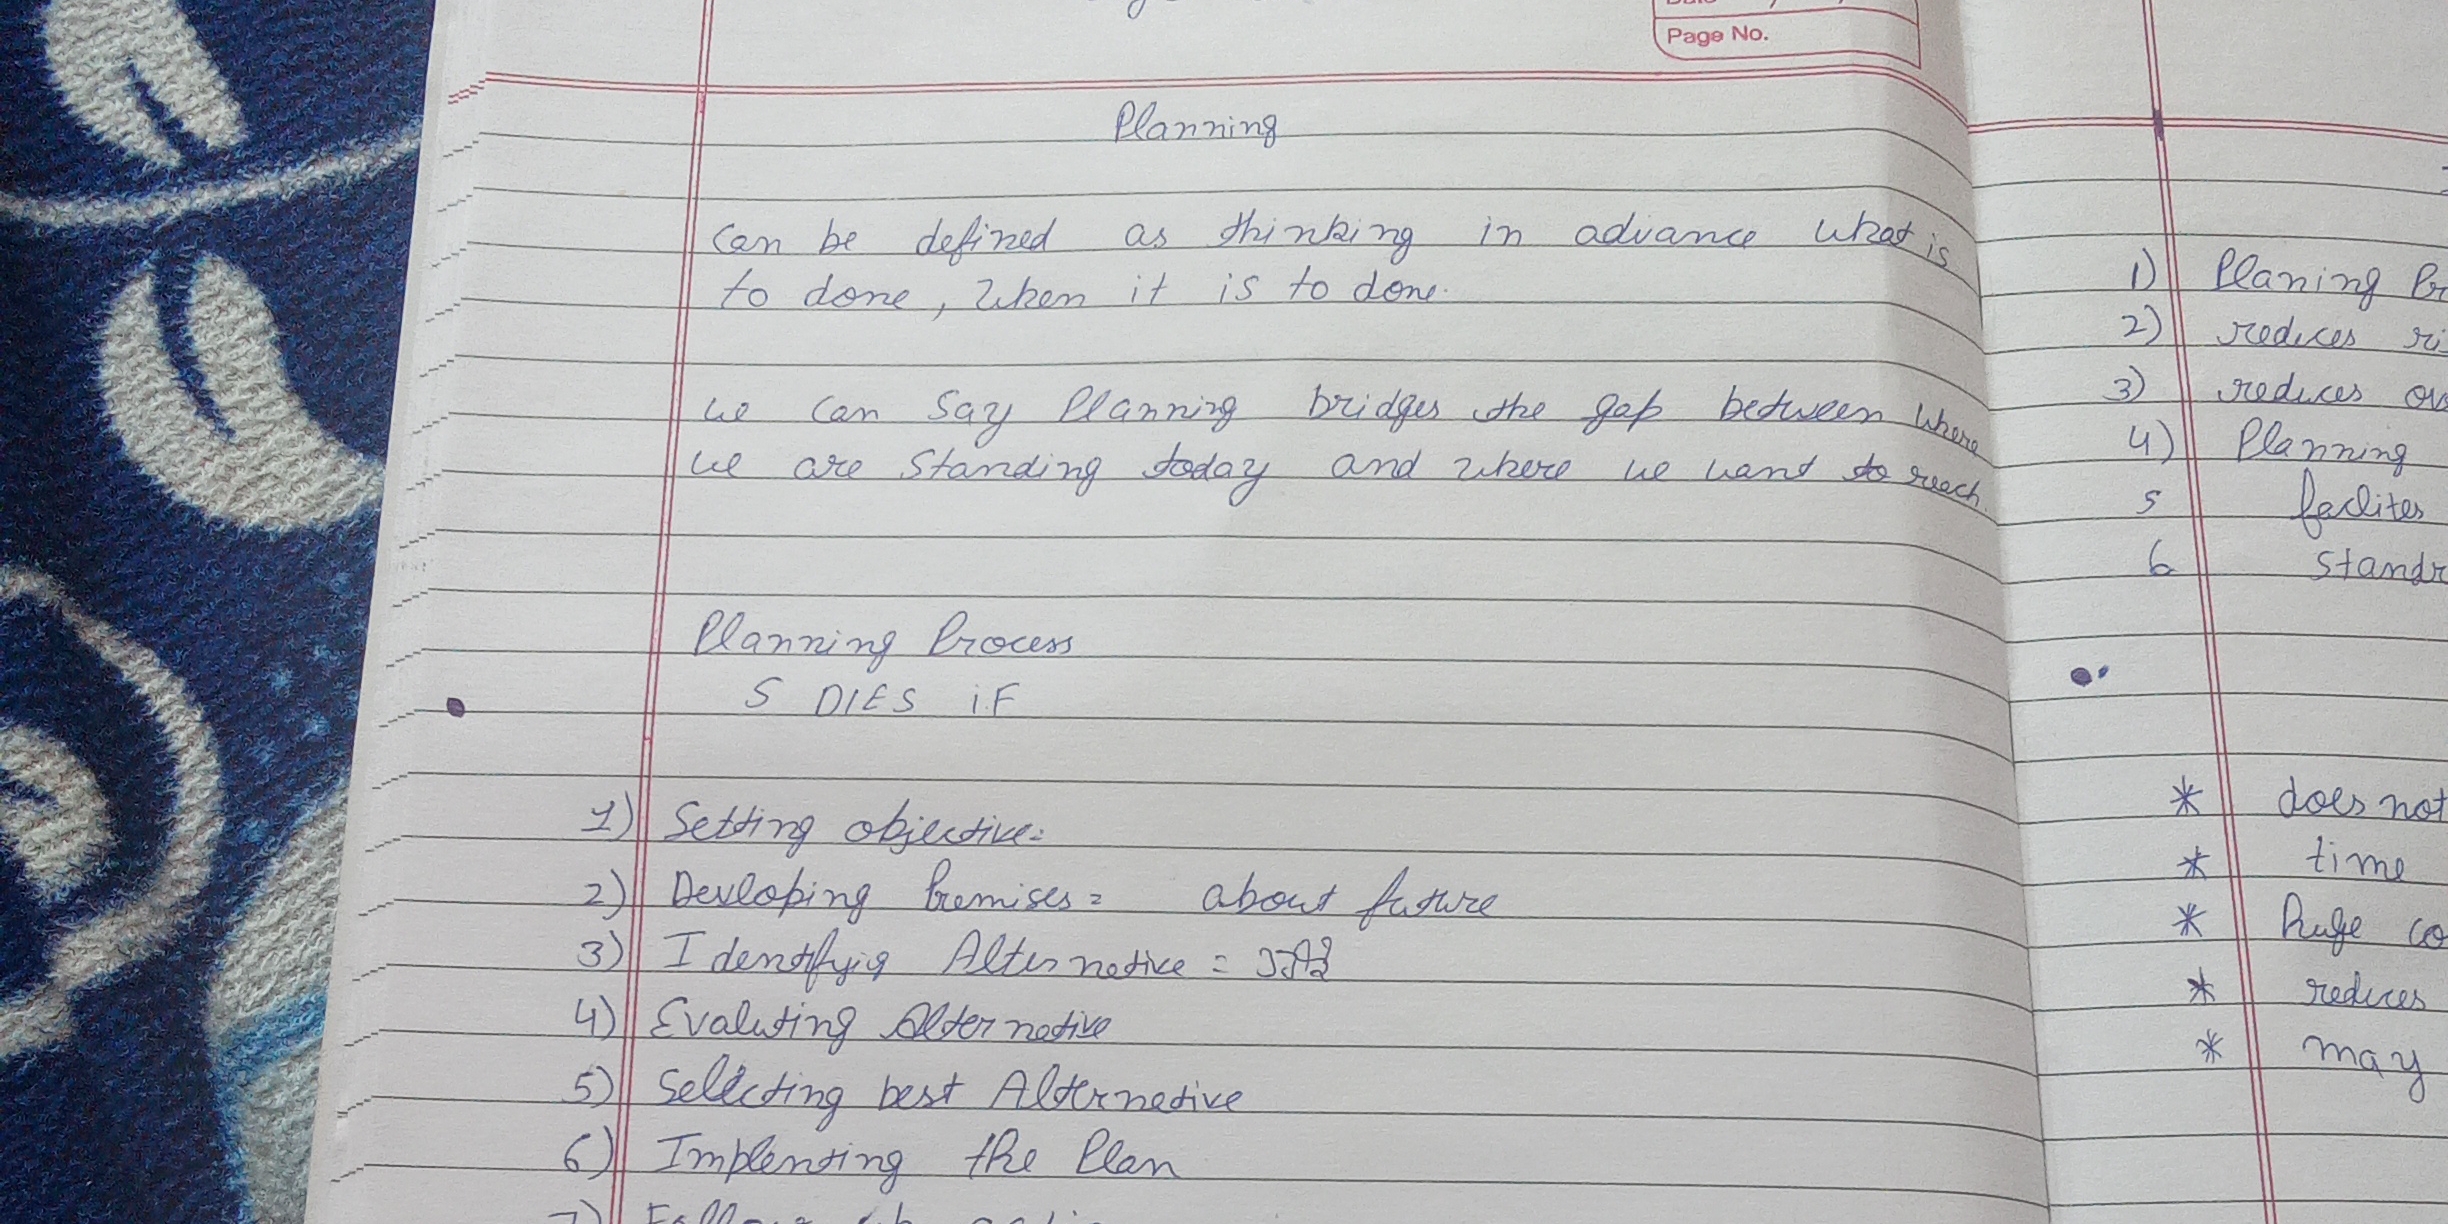 Page No.
Planning
can be defined as thinking in advance what is
to done, when it is to done.
we can say Planning bridges the gap between where
we are standing today and where we want to reach.
Planning Process
S DIES IF
1) Setting objective:
2) Devloping Premises = about future
3) Identifyig Alternative =
4) Evaluting Alternative
5) Selecting best Alternative
6) Implenting the Plan
7) Follow up
1) Planing
2) reduces
3) reduces
4) Planning
5 faclites
6
* does not
* time
* huge
* reduces
* may